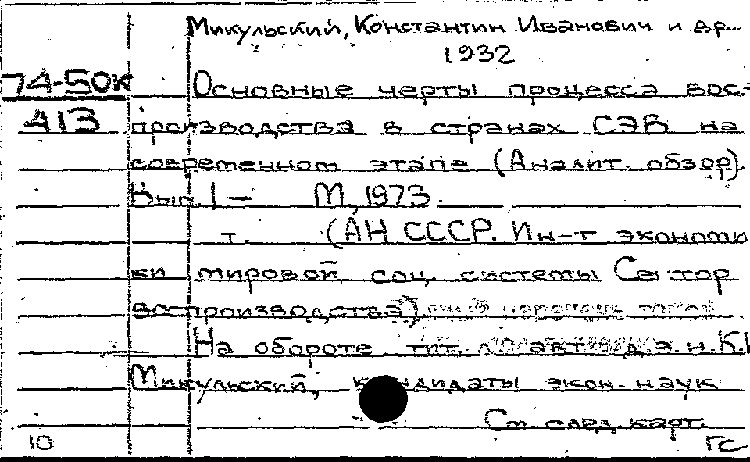 Микульский, Константин Иванович и др...
1932
74-50к Основные черты процесса вос-
413 производства в странах СЭВ на
современном этапе (Аналит. обзор).
Вып. 1 – М, 1973.
т. (АН СССР. Ин-т экономи
ки мировой соц. системы Сектор
воспроизводства)
На обороте тит. д.э.н. К.И
Микульский, кандидаты экон. наук
См. след. карт.
10 ГС